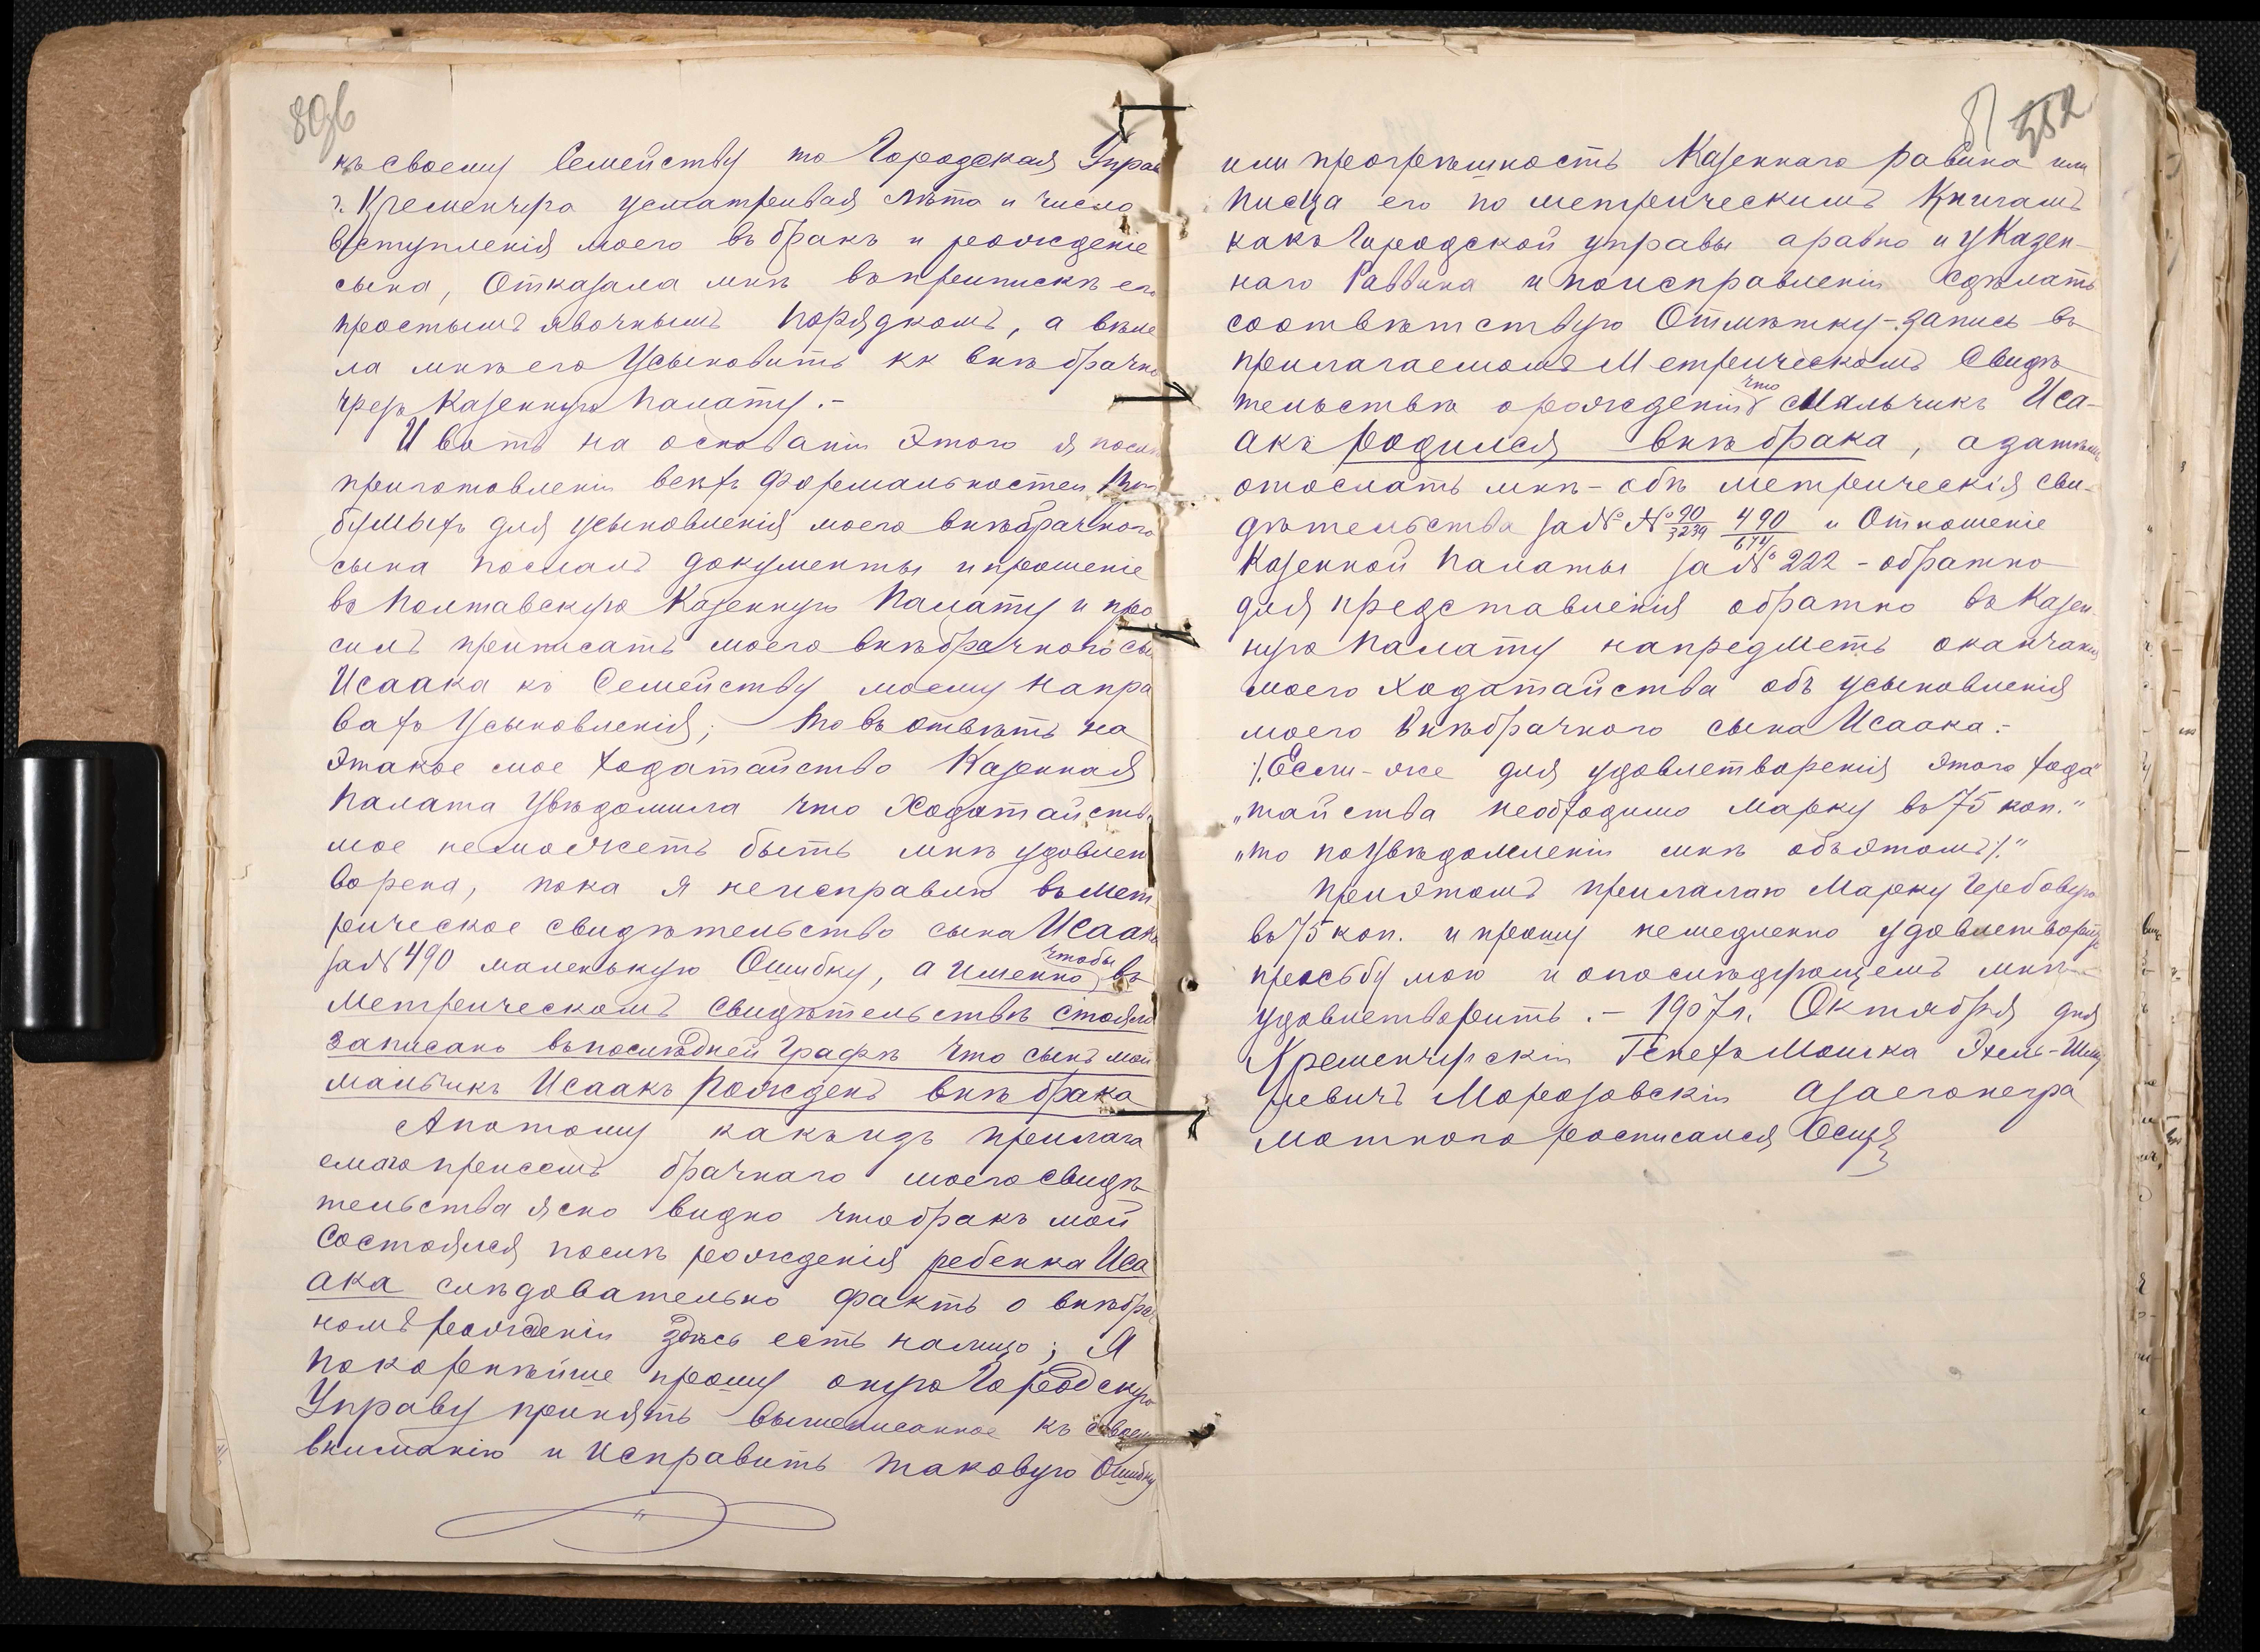 80об
къ своему Семейству то Городская Управ
г. Кременчуга усматривая лѣта и число
вступленія моего въ бракъ и рожденіе
сына, Отказала мнѣ въ припискѣ его
простымъ явочнымъ порядкомъ, а велѣ
ла мнѣ его Усыновить кк внѣ брачно
чрезъ Казенную Палату.-
И вотъ на основаніи этого я послѣ
приготовленіи всѣхъ формальностей
для усыновленія моего внѣбрачного
сына послалъ документы и прошеніе
въ Полтавскую Казенную Палату и про
силъ приписать моего внѣбрачного сы
Исаака къ Семейству моему на пра
вахъ Усыновленія; то въ отвѣтъ на
этакое мое Ходатайство Казенная
Палата Увѣдомила что Ходатайств
мое не можетъ быть мнѣ удовлет
ворена, пока я неисправлю въ мет
рическое свидѣтельство сына Исаака
за № 490 маленькую Ошибку, а именно чтобы въ
Метрическомъ Свидѣтельствѣ стояло
записано въ послѣдней Графѣ что сынъ мой
мальчикъ Исаакъ Рожденъ внѣ брака
А потому какъ изъ прилага
емого присемъ брачнаго моего свидѣ
тельства ясно видно что бракъ мой
Состоялся послѣ рожденія ребенка Иса
ака слѣдовательно фактъ о внѣбрач
номъ рожденіи здѣсь есть налицо; Я
покорнѣйше прошу оную Городскую
Управу принять вышеписанное къ своему
вниманію и исправить таковую Ошибку
81 352
или прогрѣшность Казеннаго равина или
писца его по метрическимъ Книгамъ
какъ Городской управы а равно и у Казен-
наго Раввина и по исправленіи сдѣлать
соотвѣтствую Отмѣтку-запись въ
прилагаемомъ Метрическомъ Свидѣ
тельствѣ о рожденіи что Мальчикъ Иса-
акъ родился внѣ брака, а затѣмъ
отослать мнѣ - обѣ метрическія сви-
дѣтельства за №№ 90/3239 490/674 и Отношеніе
Казенной Палаты за № 222 - обратно
для представленія обратно въ Казен
ную Палату на предметъ окончанія
моего Ходатайства объ усыновленія
моего внѣбрачного сына Исаака.-
٪ Если-же для удовлетворенія этого хода"
„тайства необходимо марку въ 75 коп."
„то по увѣдомленіи мнѣ объ этомъ ٪."
При этомъ прилагаю Марку Гербовую
въ 75 коп. и прошу немедленно удовлетворить
просьбу мою и о послѣдующемъ мнѣ-
удовлетворить.- 1907 г. Октября дня
Кременчугскій Мошка Эхель-Шму
левичъ Морозовскій а за его негра
мотного росписался